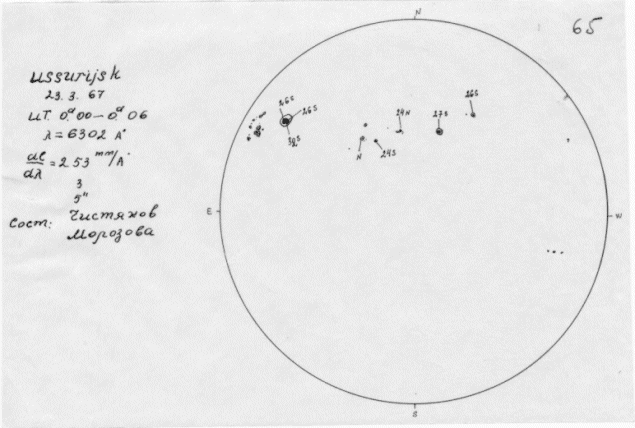 65
Ussurijsk
23.3.67
UT. 0ᵈ00–0ᵈ06
λ=6302 A°
dl/dλ = 2.53 mm/A°
3
5"
Сост: Чистяков
Морозова
N
E
W
S
26S
26S
24N
27S
26S
N
24S